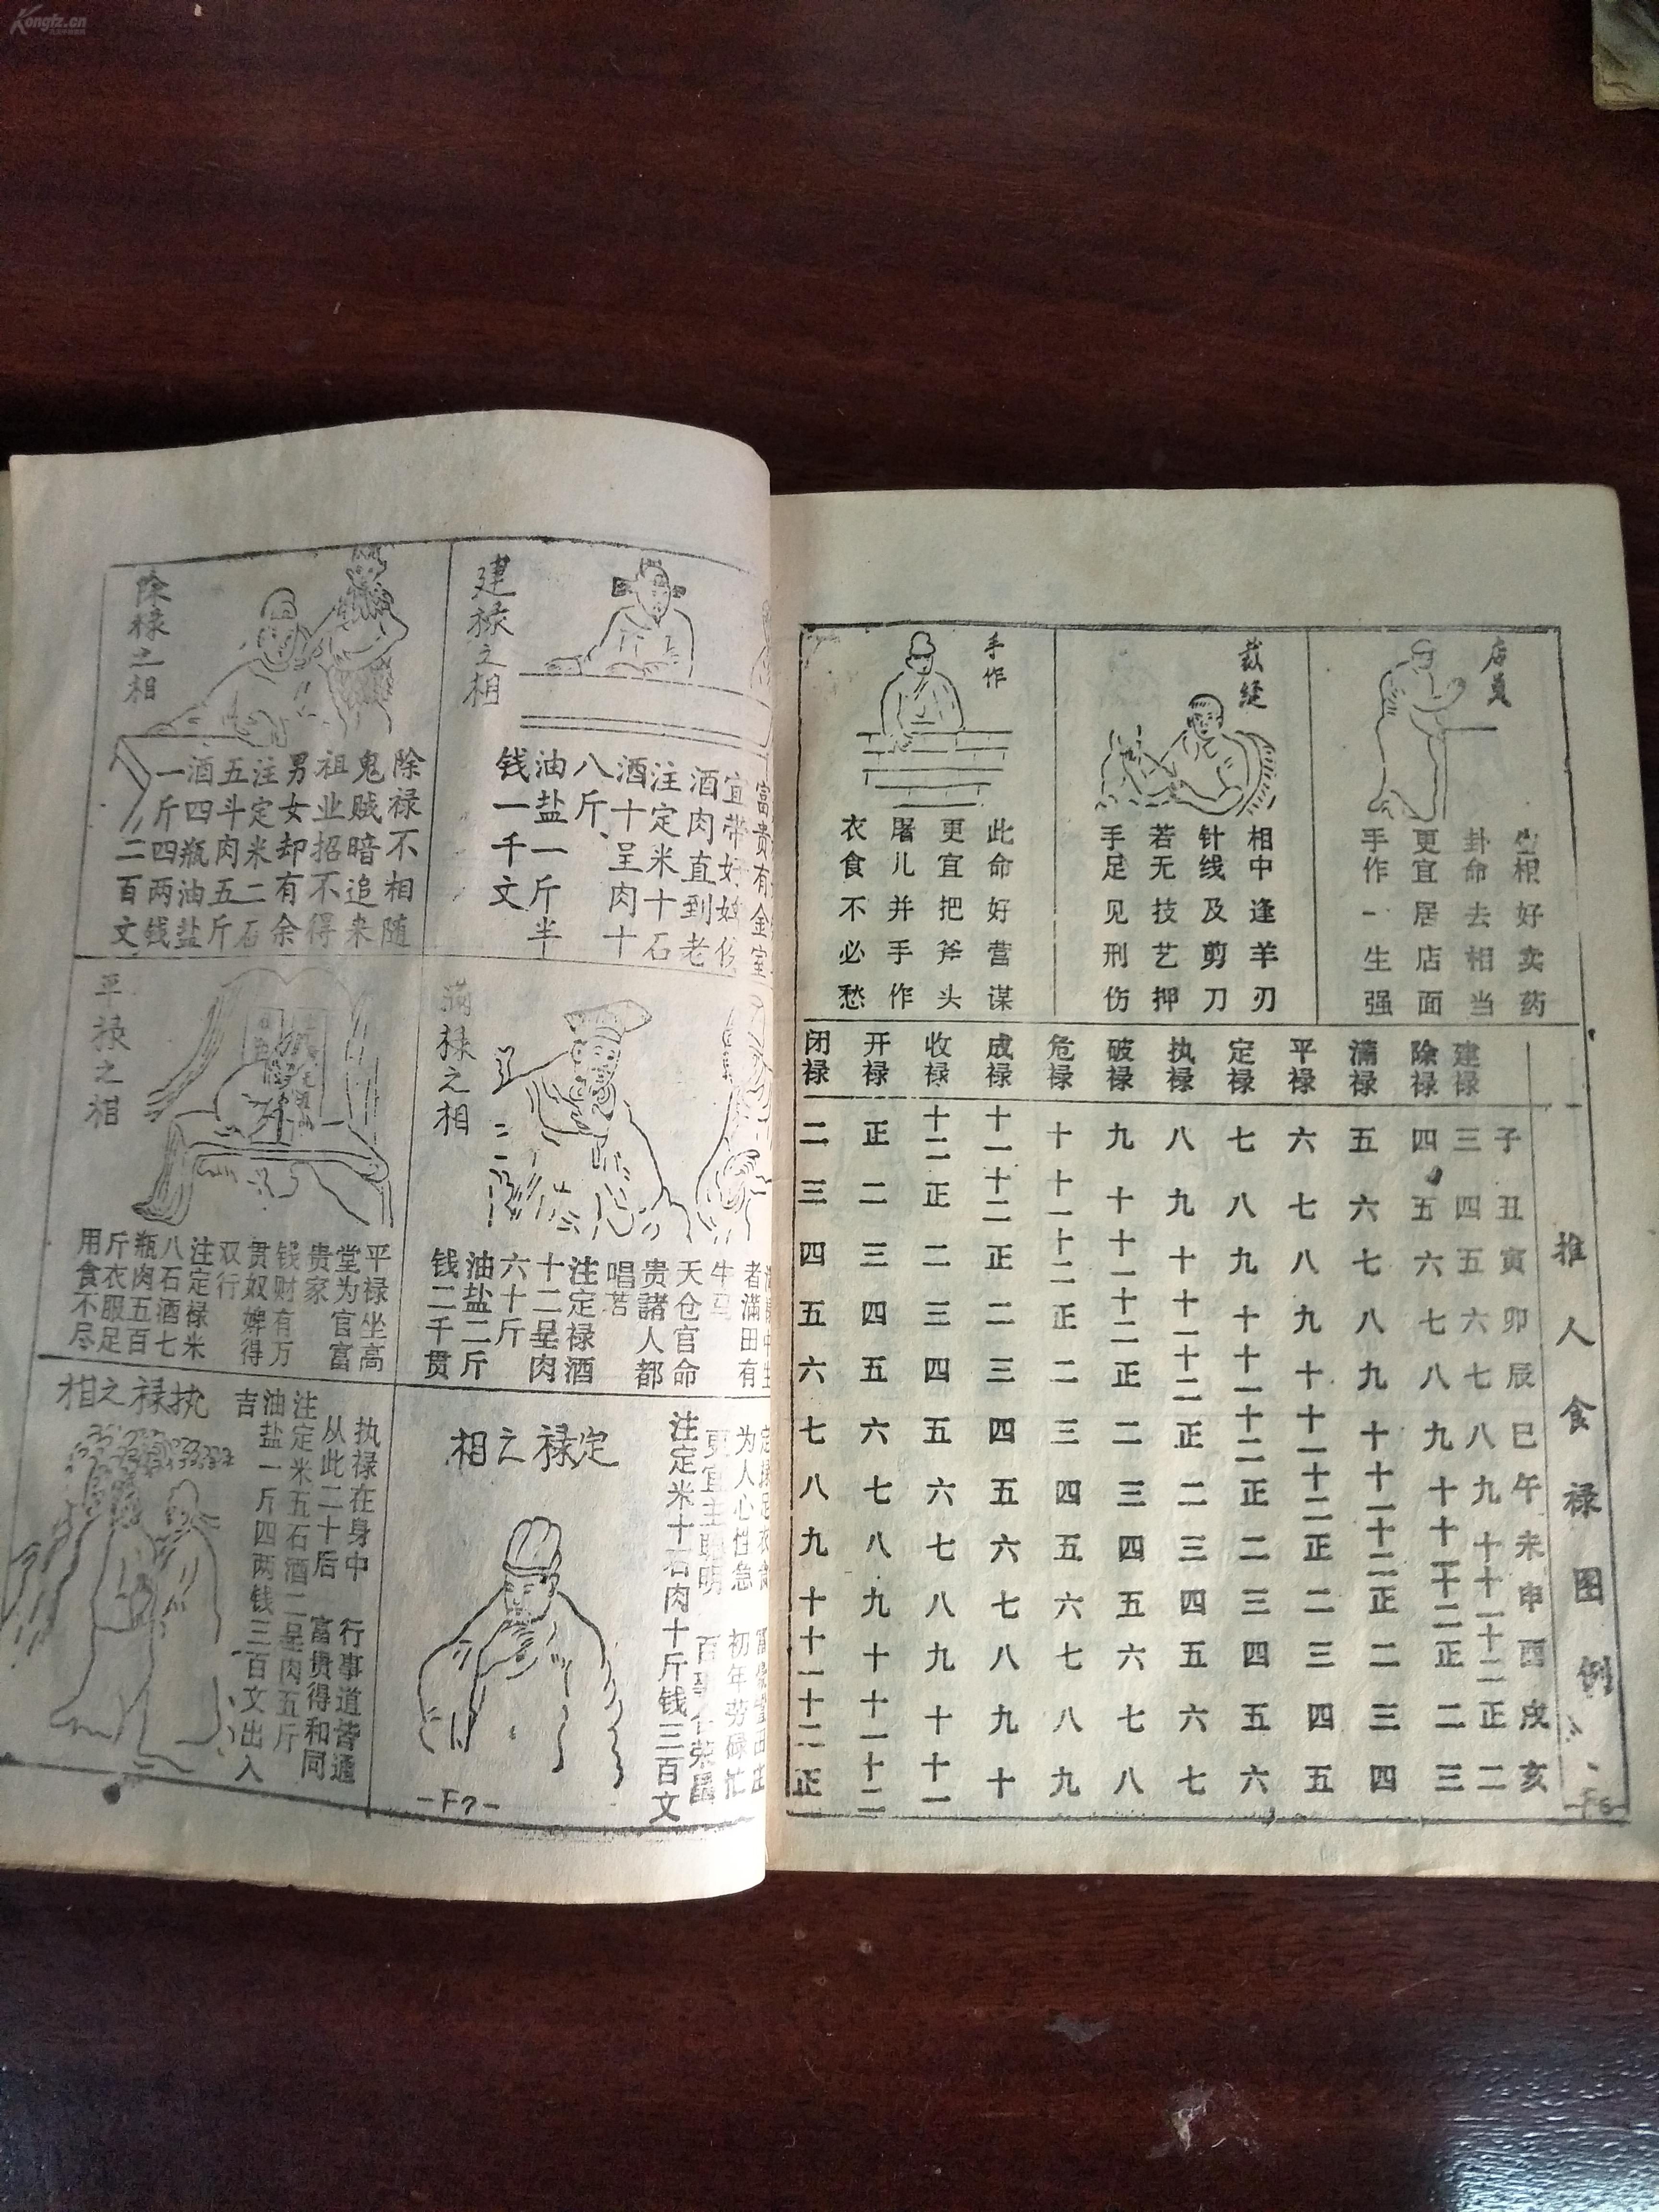 Kongfz.cn
店员
好卖药
卦命去相当
更宜居店面
手作一生强
裁缝
相中逢羊刃
针线及剪刀
若无技艺押
手足见刑伤
手作
此命好营谋
更宜把斧头
屠儿并手作
衣食不必愁
推人食禄图例
子丑寅卯辰巳午未申酉戌亥
建禄 三四五六七八九十十一十二正二
除禄 四五六七八九十十一十二正二三
满禄 五六七八九十十一十二正二三四
平禄 六七八九十十一十二正二三四五
定禄 七八九十十一十二正二三四五六
执禄 八九十十一十二正二三四五六七
破禄 九十十一十二正二三四五六七八
危禄 十十一十二正二三四五六七八九
成禄 十一十二正二三四五六七八九十
收禄 十二正二三四五六七八九十十一
开禄 正二三四五六七八九十十一十二
闭禄 二三四五六七八九十十一十二正
-F6-
建禄之相
富贵有金室
宜带好婢
酒肉直到老
注定米十石
酒十呈肉十
八斤
油盐一斤半
钱一千文
除禄之相
除禄不相随
鬼贼暗追来
祖业招不得
男女却有余
注定米二石
五斗肉五斤
酒四瓶油盐
一斤四两钱
二百文
满禄之相
者满田有
牛马
天仓官命
贵諸人都
唱若
注定禄酒
十二呈肉
六十斤
油盐二斤
钱二千贯
平禄之相
平禄坐高
堂为官富
贵家
钱财有万
贯奴婢得
双行
注定禄米
八石酒七
瓶肉五百
斤衣服足
用食不尽
定禄之相
为人心性急 初年劳碌忙
更宜主聪明 百事荣昌
注定米十石肉十斤钱三百文
执禄之相
执禄在身中 行事道皆通
从此二十后 富贵得和同
注定米五石酒二呈肉五斤
油盐一斤四两钱三百文出入
吉
-F7-